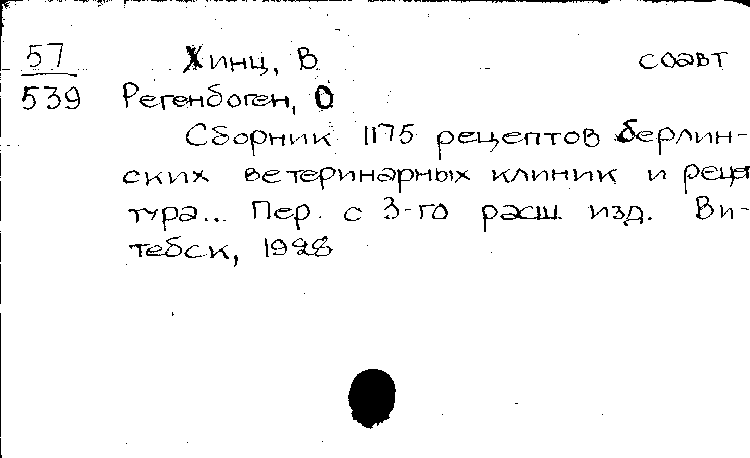 57 Хинц, В соавт
539 Регенбоген, О
Сборник 1175 рецептов берлин-
ских ветеринарных клиник и рецеп
тура... Пер. с 3-го расш. изд. Ви-
тебск, 1928